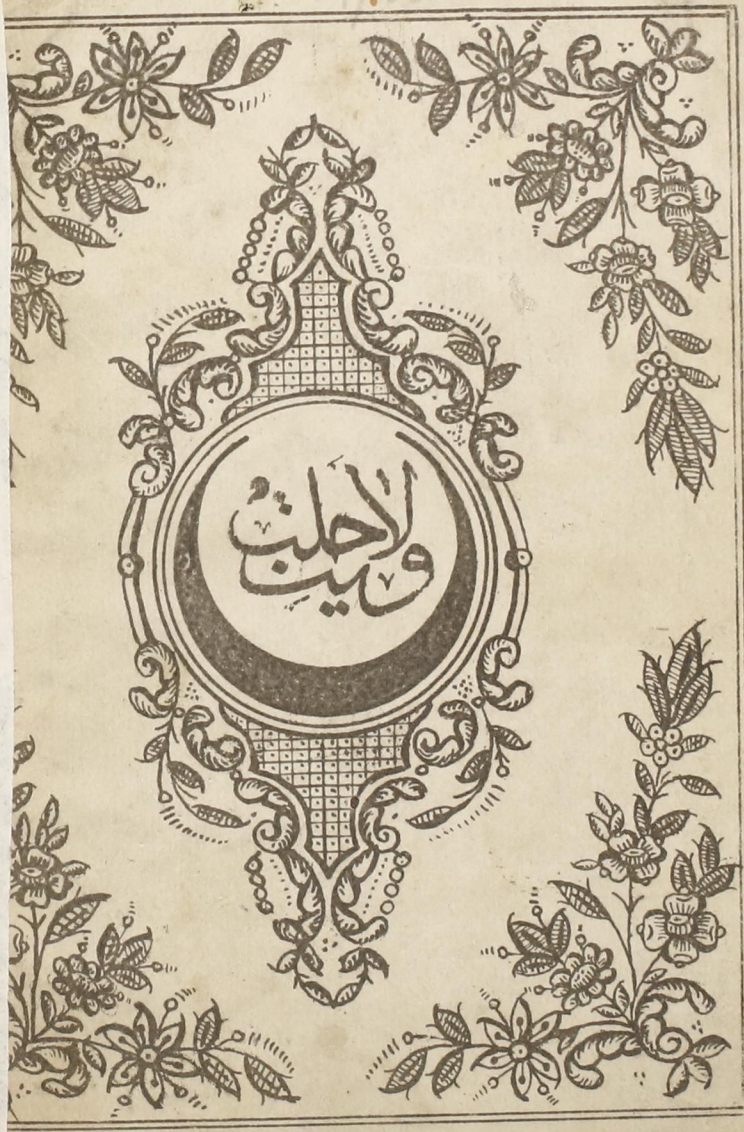 ولايت حلب